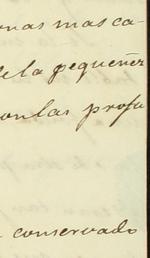 nas mas ca-
de la pequeñez
con las profu
conservado